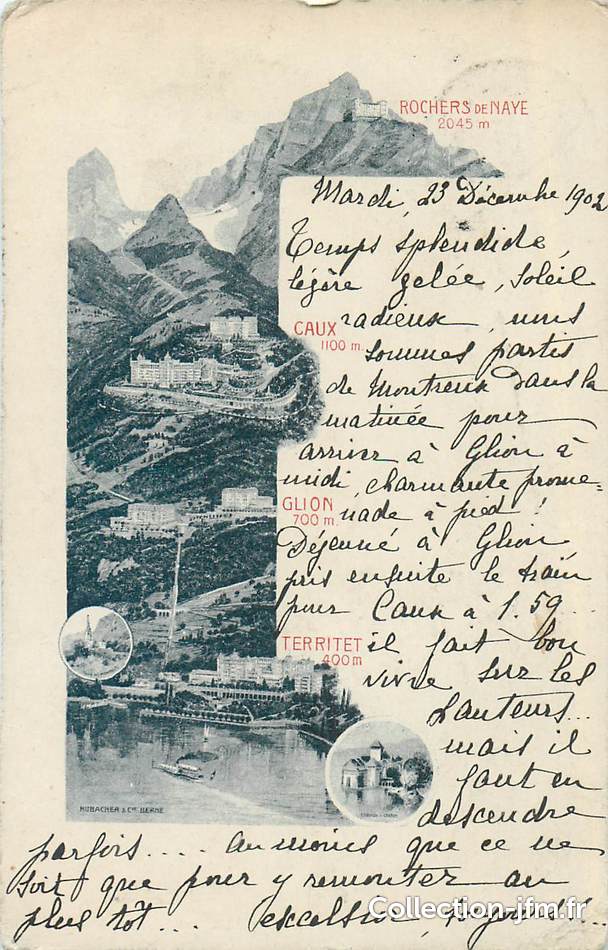 ROCHERS DE NAYE
2045 m
Mardi, 23 Décembre 1902
Temps splendide,
légère gelée, soleil
radieux, nous
CAUX
1100 m.
sommes partis
de Montreux dans la
matinée pour
arriver à Glion à
midi, charmante prome-
GLION
700 m.
nade à pied !
Déjeuné à Glion
pris ensuite le train
pour Caux à 1.59...
TERRITET
400 m
il fait bon
vivre sur les
hauteurs...
mais il
faut en
descendre
HUBACHER & Cie BERNE
parfois.... au moins que ce ne
soit que pour y remonter au
plus tôt... excelsior,
Collection-jfm.fr